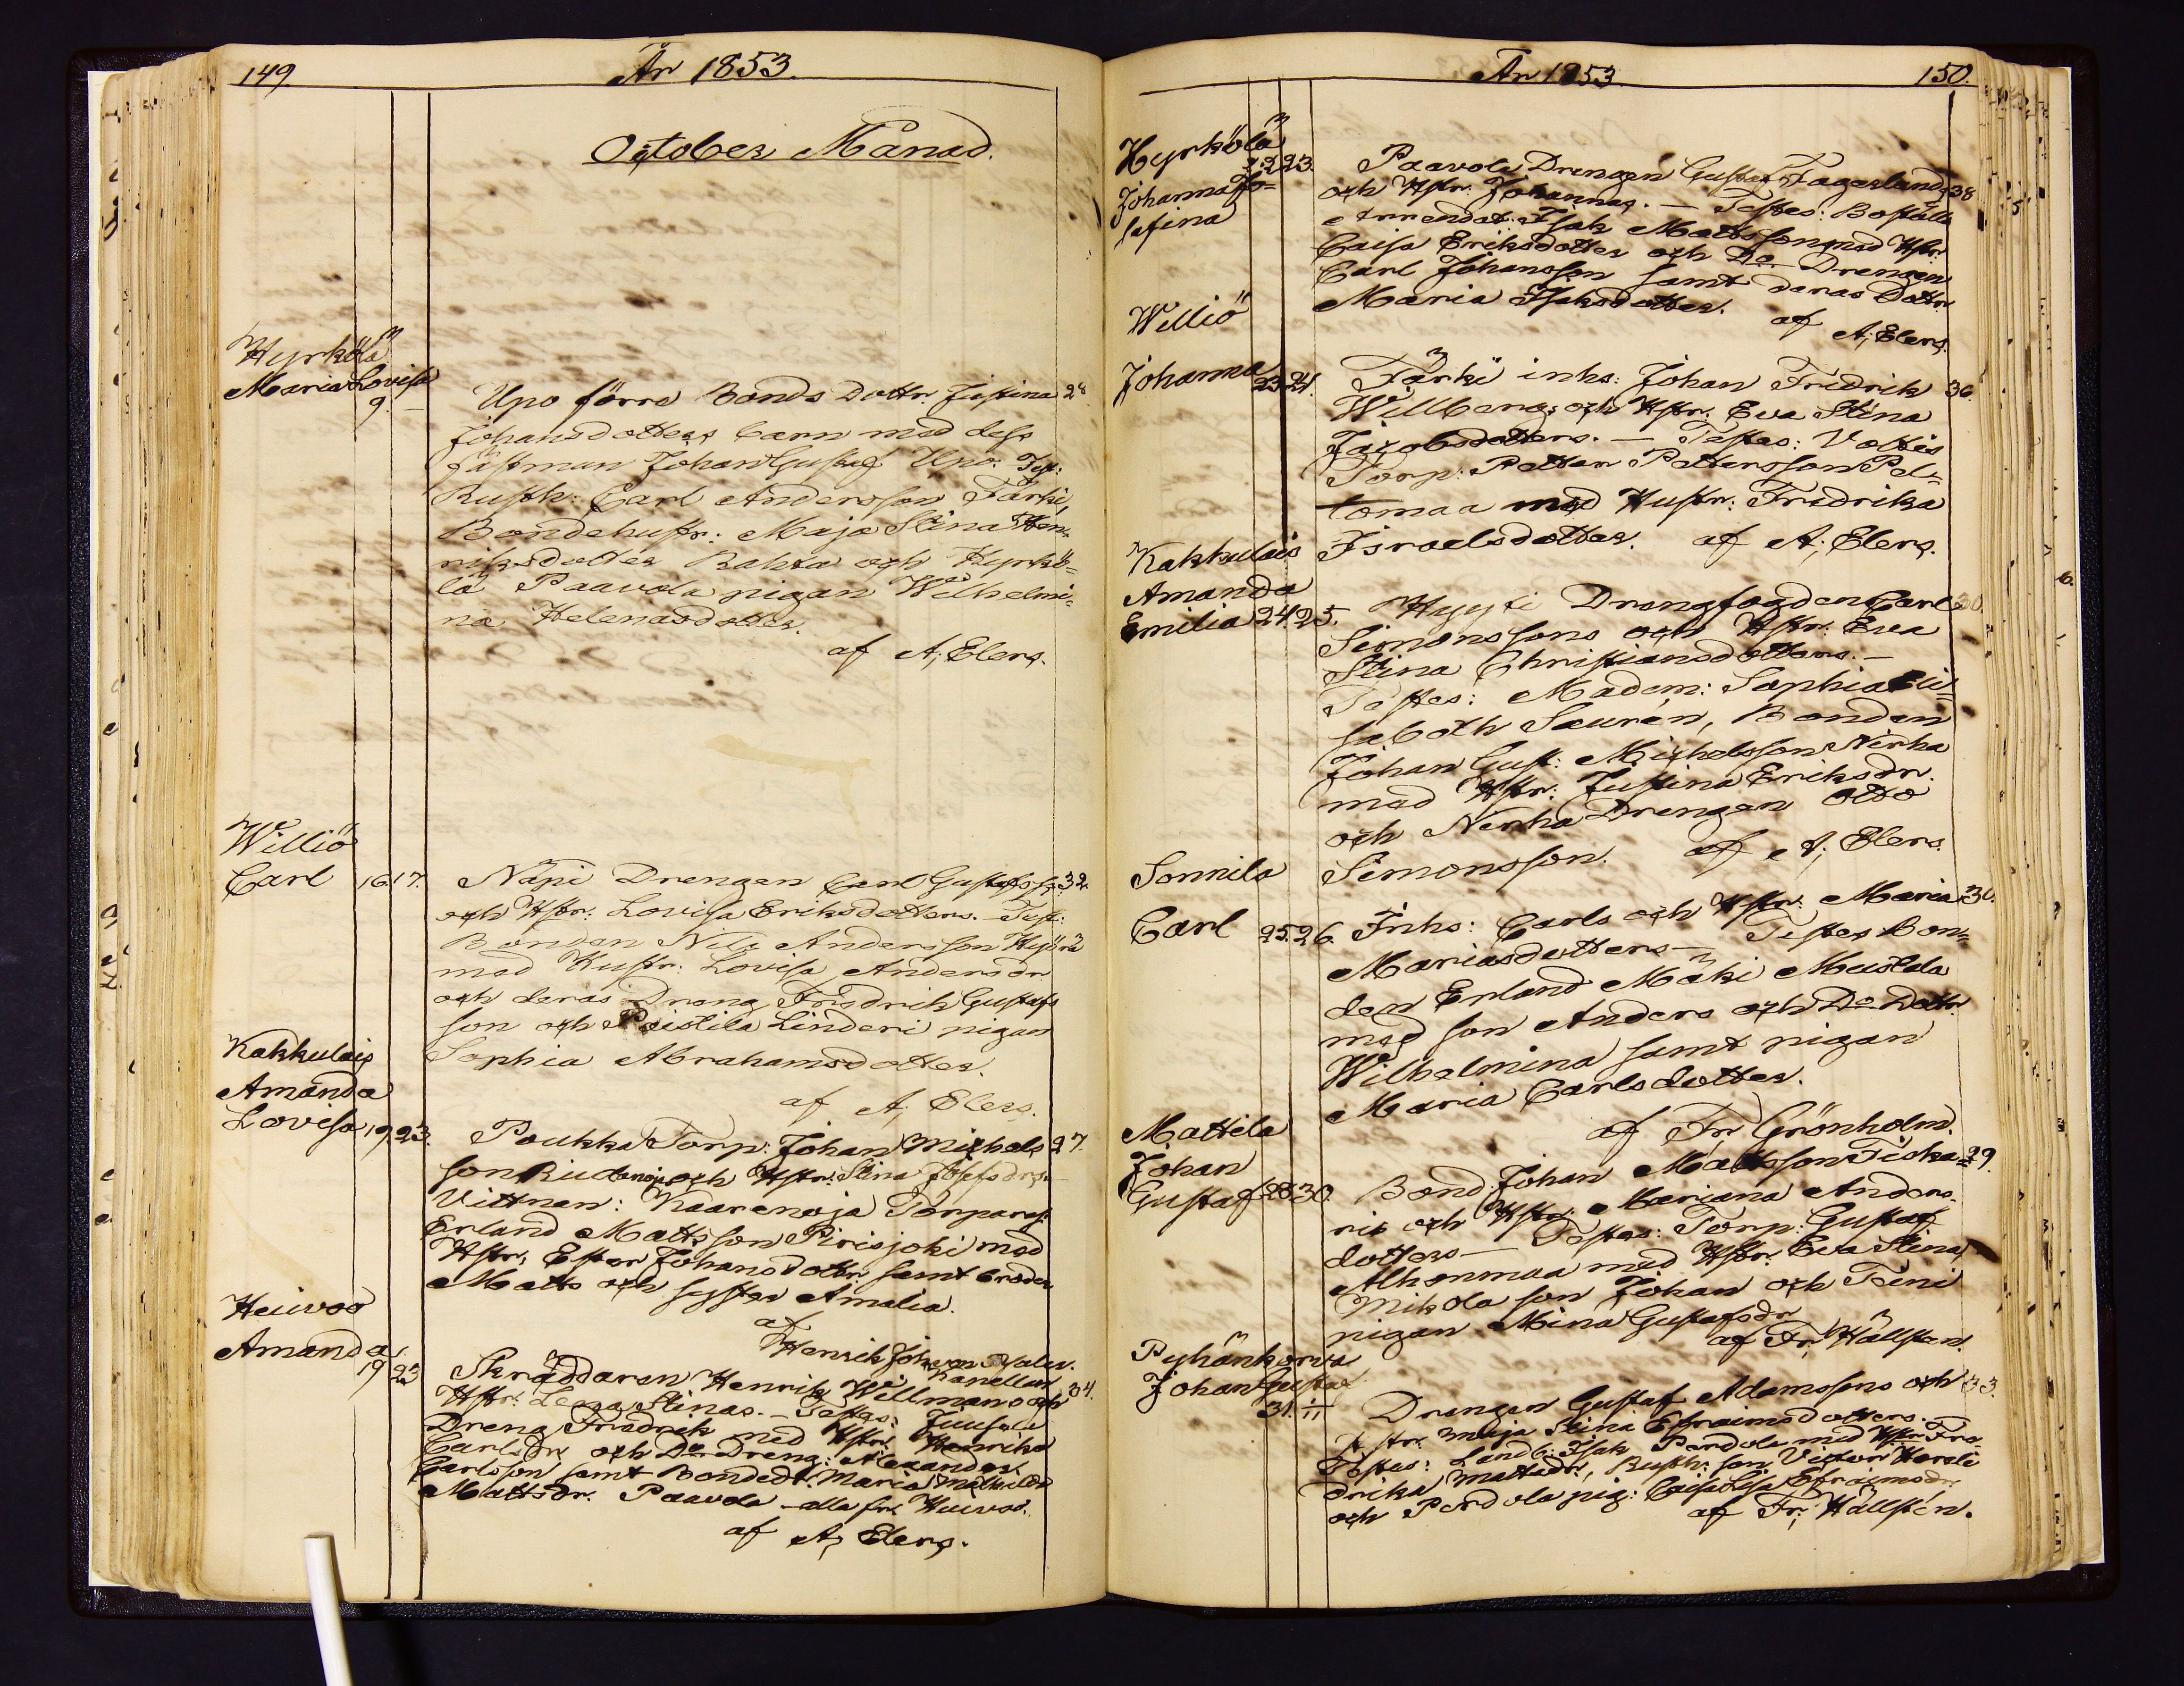 149.
År 1853.
October Månad.
Hyrkölä
Maria Lovisa
9. –
Upo förre Bonds Dottr. Justina 28
Johansdotters barn med dess
fästman Johan Gustaf Upo. Test:
Rusth: Carl Andersson Färki,
Bondehustr: Maja Stina Hen-
riksdotter Rakka och Hyrkö=
lä Paavola pigan Wilhelmi=
na Helenasdotter.
af A; Elers.
Williö
Carl 16. 17. Näpi Drengen Carl Gustafss: 32.
och Hstr: Lovisa Eriksdotters. – Test:
Bonden Nils Andersson Hyörä
med Hustr: Lovisa Andersdr
och deras Dreng Fredrik Gustafs
son och Poistila Linderi pigan
Sophia Abrahamsdotter.
af A; Elers.
Kakkulais
Amanda
Lovisa 19. 23. Poukka Torp: Johan Michels 27.
son och Hstr: Stina Josefsdrs. –
Vittnen: Kaarenoja Torparen
Erland Mattsson Pirisjoki med
Hstr: Ester Johansdottr samt broder
Matts och syster Amalia.
af
Henrik Joh: von Pfaler.
Kanellan
Heivoo
Amanda
19 23 Skräddaren Henrik Willmans och 34.
Hstr: Lena Stinas. – Testes: Juusela
Dreng Fredrik med Hstr: Henrika
Carlsdr och Do Dreng: Alexander
Carlsson samt Bondedr: Maria Mathilda
Mattsdr. Paavola – alla frn Heivoo.
af A; Elers.
År 1853.
150.
Hyrkölä
22 23.
Johanna Jo=
sefina
Paavola Drengen Gustaf Fagerlunds 38
och Hstr: Johannas. – Testes: Boställs
arrendat: Isak Mattsson med Hstr:
Caisa Eriksdotter och Do Drengen
Carl Johansson samt deras Dottr
Maria Isaksdotter.
af A; Elers.
Williö
Johanna 23. 24. Färki inhs: Johan Fredrik 36.
Willbergs och Hstr: Eva Stina
Jacobsdotters. – Testes: Voltis
Torp: Petter Pettersson Pel=
tomaa med Hustr: Fredrika
Israelsdotter. af A; Elers.
Kakkulais
Amanda
Emilia 24. 25. Hyyti Drengfogden Carl 30
Simonssons och Hstr: Eva
Stina Christiansdotters. –
Testes: Madem: Sophia Eli=
sabeth Saurén, Bonden
Johan Gust: Michelsson Nirha
med Hstr: Justina Eriksdr.
och Nirha Drengen Otto
Simonsson. af A; Elers.
Sonnila
Carl 25. 26. Inhs: Carls och Hstr: Maria 30.
Mariasdotters – Testes Bon=
den Erland Mäki Mustala
med son Anders och Do Dottr
Wilhelmina samt pigan
Maria Carlsdotter.
af Fr; Grönholm.
Mattila
Johan
Gustaf 28 30. Bond. Johan Mattsson Tiska= 29.
ris och Hstr: Mariana Anders-
dotters – Testes: Torp: Gustaf
Alhonmaa med Hstr: Eva Stina,
Mikola son Johan och Teini
pigan Mina Gustafsdr
af Fr; Hällsten.
Pyhänkorva
Johan Gustaf
31. 1/11 Drengen Gustaf Adamssons och 33.
Hstr: Maja Stina Efraimsdotters.
Testes: Landb: Isak Perdola med Hstr: Fre-
drika Mattsdr, Rusth: son Victor Hereli
och Perdola pig: Caisa Lisa Efraimsdr
af Fr; Hällsten.